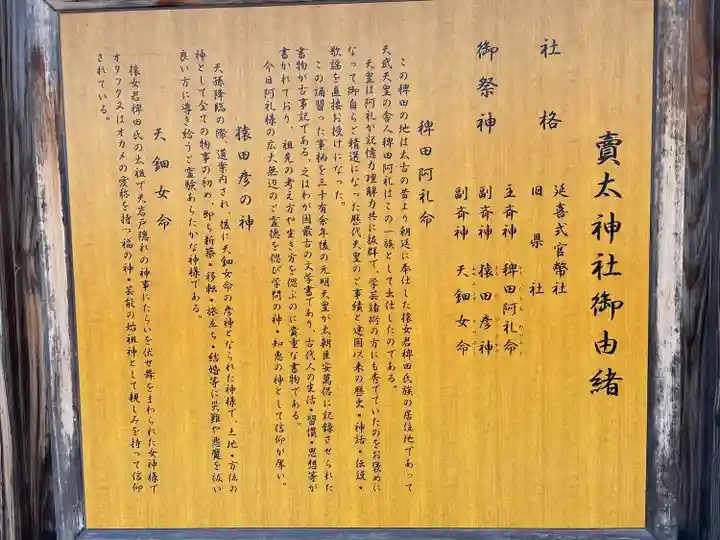 賣太神社御由緒
社格 延喜式官幣社
旧県社
御祭神 主斎神 稗田阿礼命
副斎神 猿田彦神
副斎神 天鈿女命
稗田阿礼命
この稗田の地は太古の昔より朝廷に奉仕した猿女君稗田氏族の居住地であって
天武天皇の舎人稗田阿礼はこの一族として出仕したのである。
天皇は阿礼が記憶力理解力共に抜群で、学芸諸術の方にも秀でていたのをお褒めに
なって御自らと精選になった歴代天皇のご事績と建国以来の歴史・神話・伝説・
歌謡を直接お授けになった。
この誦習った事柄を三十有余年後の元明天皇が太朝臣安萬侶に記録させられた
書物が古事記である。之はわが国最古の文学書であり、古代人の生活・習慣・思想等が
書かれており、祖先の考え方や生き方を偲ぶのに貴重な書物である。
今日阿礼様の広大無辺のご霊徳を偲び学問の神・知恵の神として信仰が厚い。
猿田彦の神
天孫降臨の際、道案内され、後に天鈿女命の彦神となられた神様で、土地・方位の
神として全ての物事の初め、即ち新築・移転・旅立ち・結婚等に災難や悪魔を祓い
良い方に導き給うご霊験あらたかな神様である。
天鈿女命
猿女君稗田氏の太祖で天岩戸隠れの神事にたらいを伏せ舞をまわられた女神様で
オタフク又はオカメの愛称を持つ福の神・芸能の始祖神として親しみを持って信仰
されている。